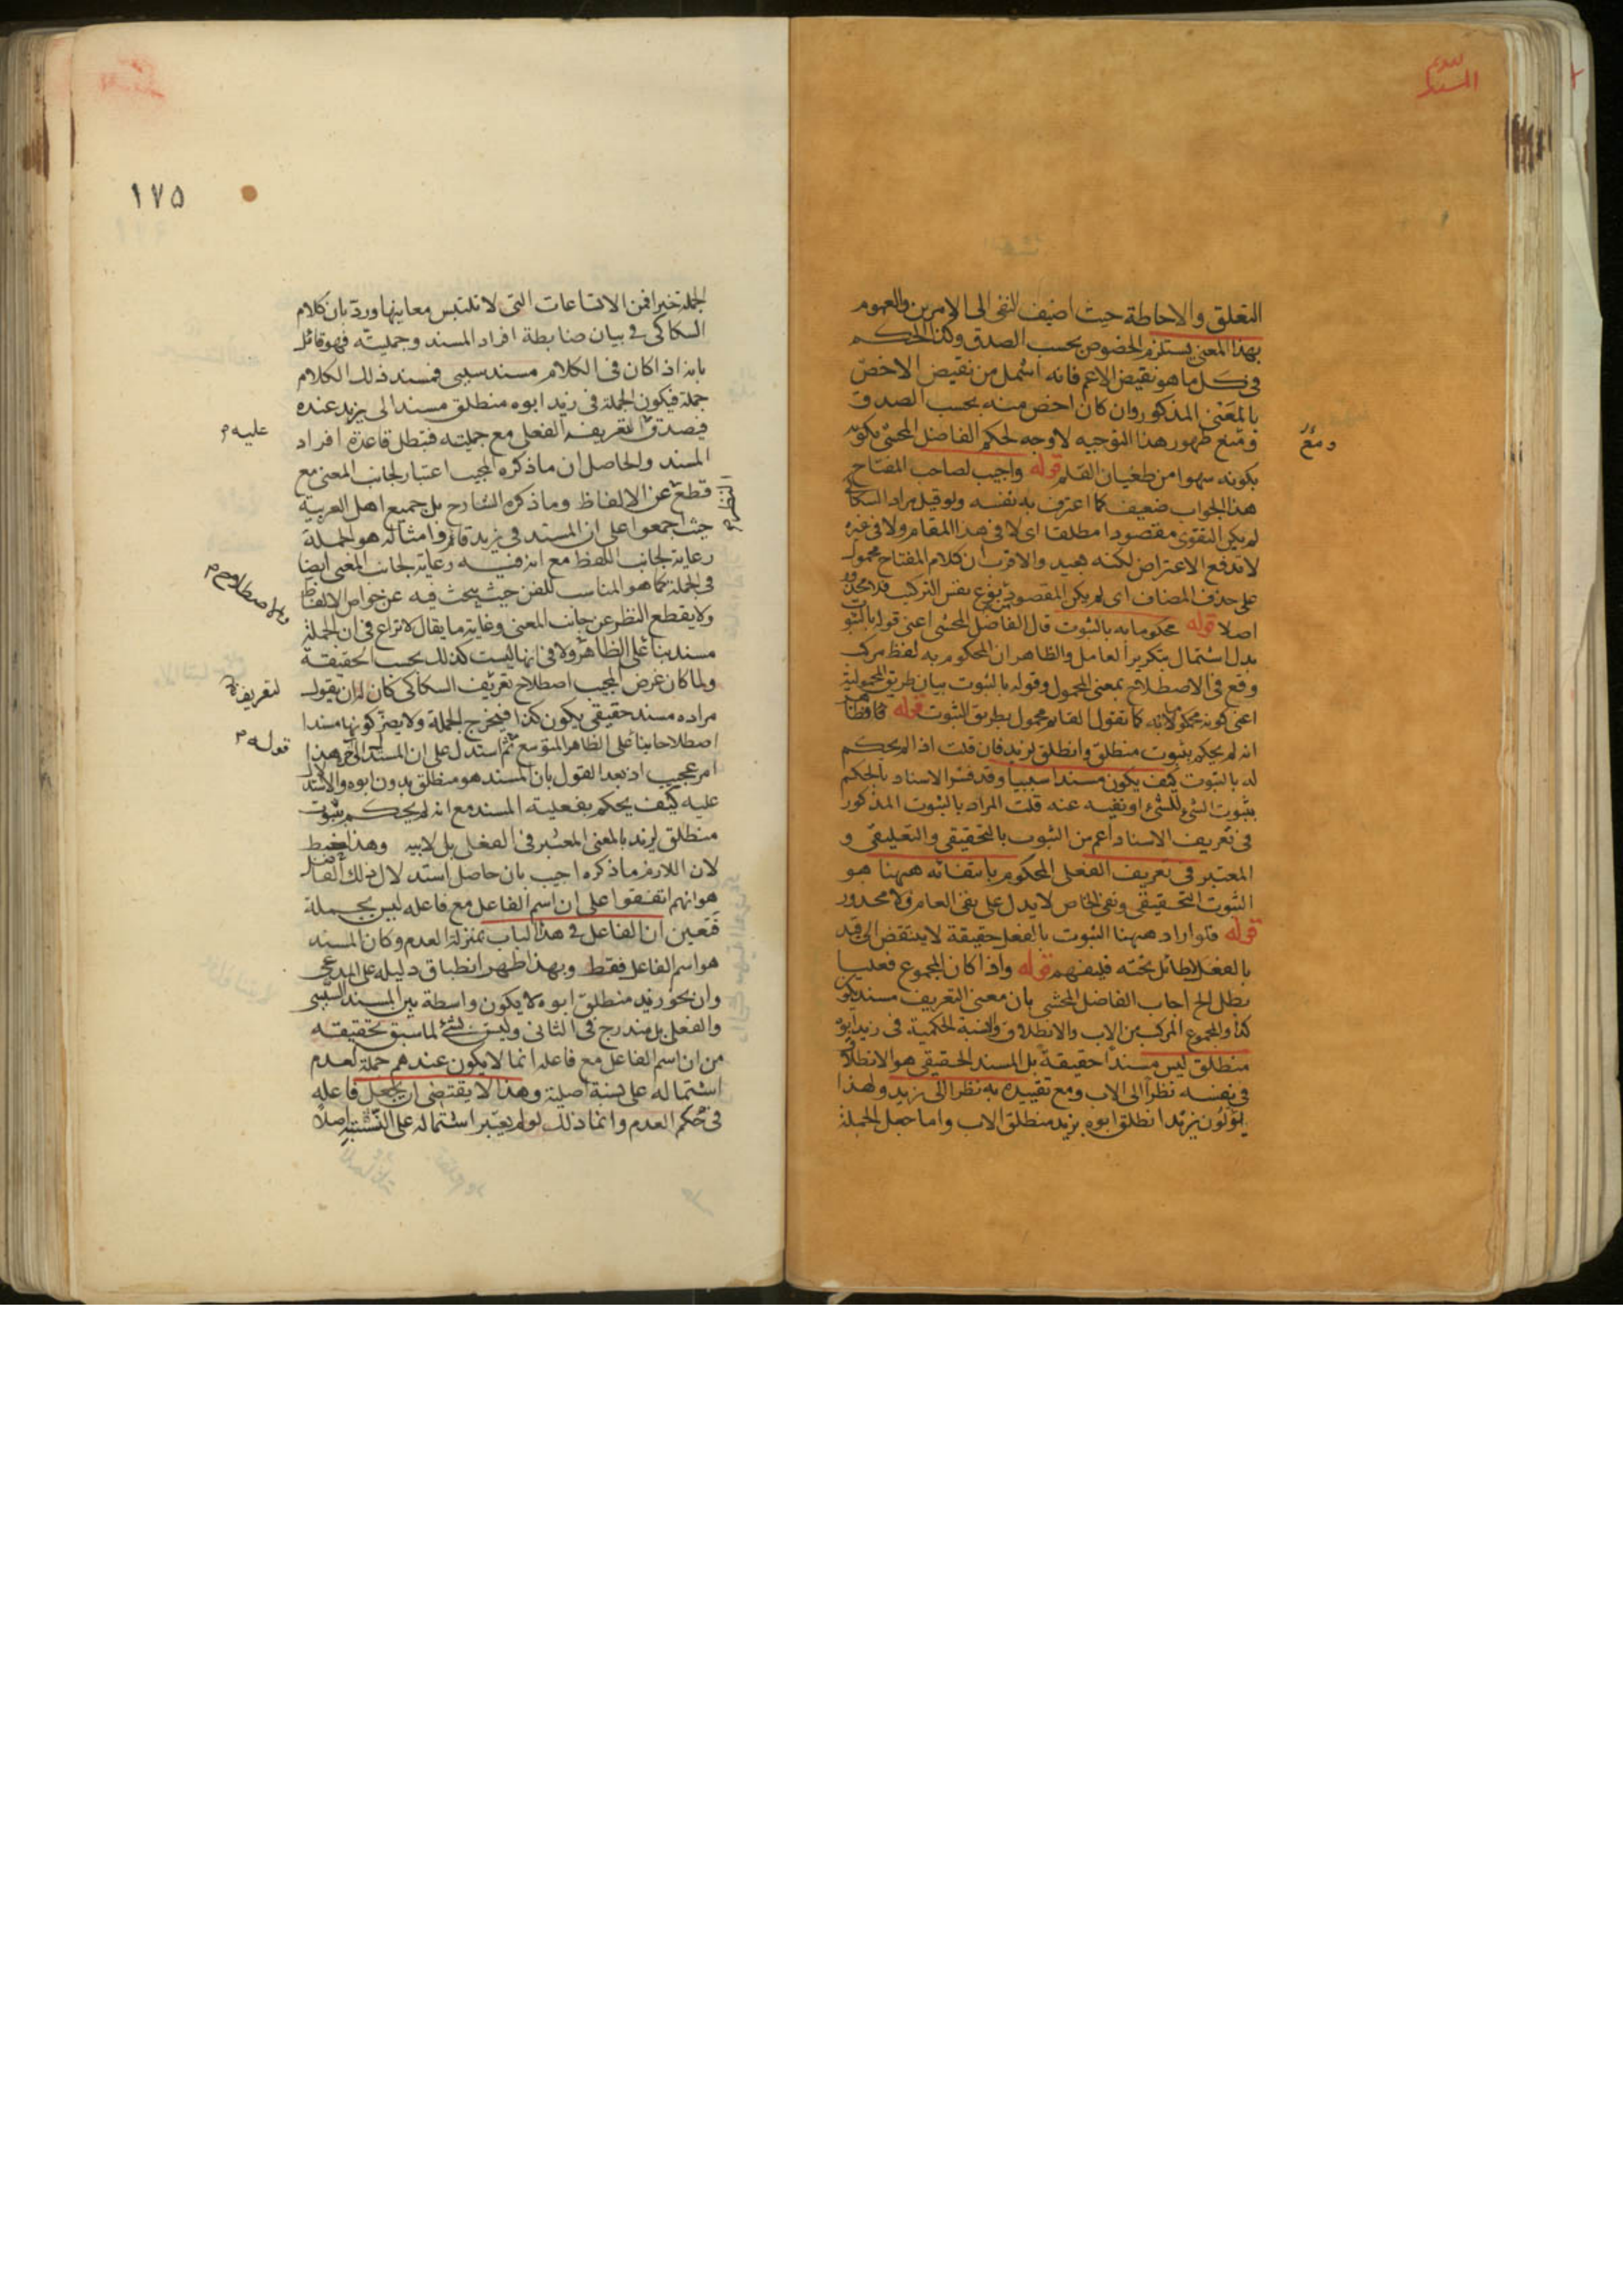 التعلق والاحاطة حيث اضيف النفى الى الامرين والعموم
بهذا المعنى يستلزم الخصوص بحسب الصدق وكذا الحكم
فى كل ما هو نقيض الاعم فانه اشمل من نقيض الاخص
بالمعنى المذكور وان كان اخص منه بحسب الصدق
ومع ظهور هذا التوجيه لا وجه لحكم الفاضل المحشى بكونه
بكونه سهوا من طغيان القلم قوله واجيب لصاحب المفتاح
هذا الجواب ضعيف كما اعترف به نفسه ولو قيل مراد السكاكى
لم يكن التقوى مقصودا مطلقا اى لا فى هذا المقام ولا فى غيره
لاندفع الاعتراض لكنه بعيد والاقرب ان كلام المفتاح محمول
على حذف المضاف اى لم يكن المقصود بنفس التركيب فلا محذور
اصلا قوله محكوما به بالثبوت قال الفاضل المحشى اعنى قوله بالثبوت
بدل اشتمال بتكرير العامل والظاهر ان المحكوم به لفظ مركب
وقع فى الاصطلاح بمعنى المحمول وقوله بالثبوت بيان طريق المحمولية
اعنى كونه محكوما به كما تقول القائم محمول بطريق الثبوت قوله
انه لم يحكم بثبوت منطلق وانطلق لزيد فان قلت اذا لم يحكم
له بالثبوت كيف يكون مسندا سببيا وقد فسر الاسناد بالحكم
بثبوت الشئ للشئ او نفيه عنه قلت المراد بالثبوت المذكور
فى تعريف الاسناد اعم من الثبوت بالتحقيقى والتعليقى و
المعتبر فى تعريف الفعلى المحكوم بانتفائه ههنا هو
الثبوت التحقيقى ونفى الخاص لا يدل على نفى العام فلا محذور
قوله فلو اراد ههنا الثبوت بالفعل حقيقة لا ينتقض الى قيد
بالفعل لا طائل تحته فليفهم قوله واذا كان المجموع فعليا
بطل الخ اجاب الفاضل المحشى بان معنى التعريف مسند يكون
كذا والمجموع المركب من الاب والانطلاق والنسبة الحكمية فى زيد ابوه
منطلق ليس مسندا حقيقة بل المسند الحقيقى هو الانطلاق
فى نفسه نظرا الى الاب ومع تقييده به نظرا الى زيد ولهذا
يؤولون زيد انطلق ابوه بزيد منطلق الاب واما جعل الجملة
ومع
١٧٥
الجملة خبرا فمن الاتساعات التى لا تلتبس معانيها ورد بان كلام
السكاكى فى بيان ضابطة افراد المسند وجمليته فهو قائل
بانه اذا كان فى الكلام مسند سببى فمسند ذلك الكلام
جملة فيكون الجملة فى زيد ابوه منطلق مسندا الى زيد عنده
فيصدق تعريف الفعلى مع جمليته فتبطل قاعدة افراد
المسند والحاصل ان ما ذكره المجيب اعتبار لجانب المعنى مع
قطع عن الالفاظ وما ذكره الشارح بل جميع اهل العربية
حيث اجمعوا على ان المسند فى زيد قائم وامثاله هو الجملة
رعاية لجانب اللفظ مع ان فيه رعاية لجانب المعنى ايضا
فى الجملة كما هو المناسب للفن حيث يبحث فيه عن خواص الالفاظ
ولا يقطع النظر عن جانب المعنى وغاية ما يقال لا نزاع فى ان الجملة
مسند بناء على الظاهر ولا فى انها ليست كذلك بحسب الحقيقة
ولما كان غرض المجيب اصطلاح تعريف السكاكى كان له ان يقول
مراده مسند حقيقى يكون كذا فيخرج الجملة ولا يضر كونها مسندا
اصطلاحا بناء على الظاهر المتوسع ثم استدل على ان المسند الى اخره هذا
امر عجيب اذ بعد القول بان المسند هو منطلق بدون ابوه والاستدلال
عليه كيف يحكم بفعلية المسند مع انه لم يحكم بثبوت
منطلق لزيد بالمعنى المعتبر فى الفعلى بل لابيه وهذا
لان اللازم ما ذكره اجيب بان حاصل استدلال ذلك الفاضل
هو انهم اتفقوا على ان اسم الفاعل مع فاعله ليس بجملة
فتعين ان الفاعل فى هذا الباب بمنزلة العدم وكان المسند
هو اسم الفاعل فقط وبهذا ظهر انطباق دليله على المدعى
وان نحو زيد منطلق ابوه لا يكون واسطة بين المسند السببى
والفعلى بل مندرج فى الثانى وليس بشئ لما سبق تحقيقه
من ان اسم الفاعل مع فاعله انما لا يكون عندهم جملة لعدم
اشتماله على نسبة اصلية وهذا لا يقتضى ان يجعل فاعله
فى حكم العدم وانما ذلك لو لم يعتبر اشتماله على النسبة اصلا
عليه م
النظر م
لتعريفه
قوله م